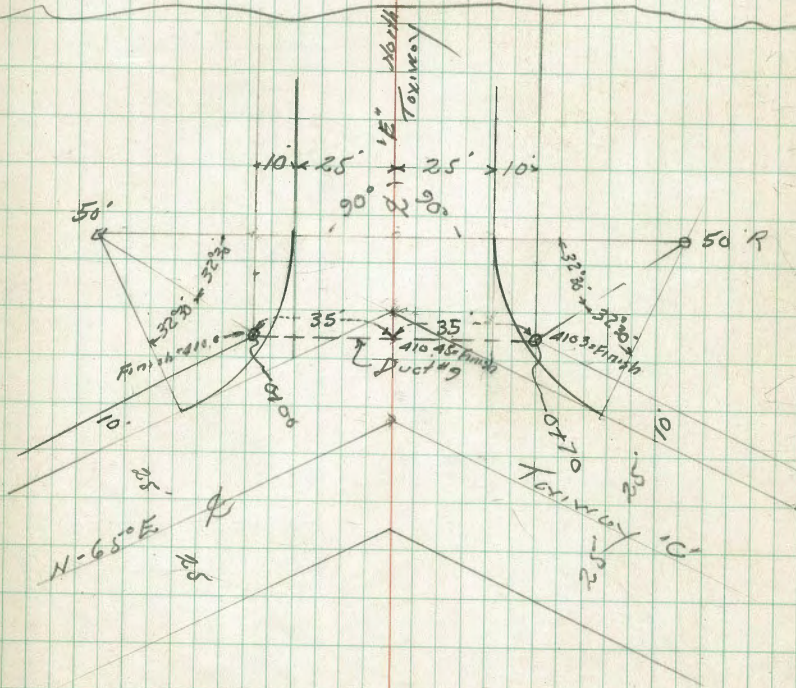 North
Taxiway
"E"
10' 25' 25' 10'
90° ℄ 90°
50'
50' R
32°30'
32°30'
32°30'
32°30'
35' 35'
Finish-410.
410.45=Finish
410.3=Finish
Duct #9
0+00
0+70
10'
10'
25'
25'
N-65°E
℄
Taxiway "C"
25'
25'